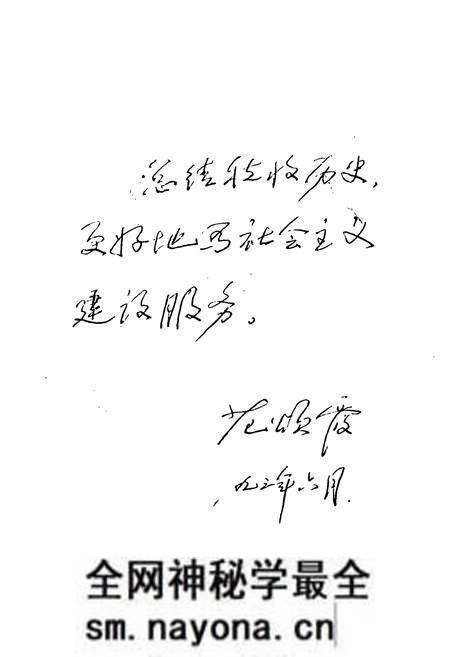 总结税收历史,
更好地为社会主义
建设服务。
范颂霞
九三年六月
全网神秘学最全
sm.nayona.cn